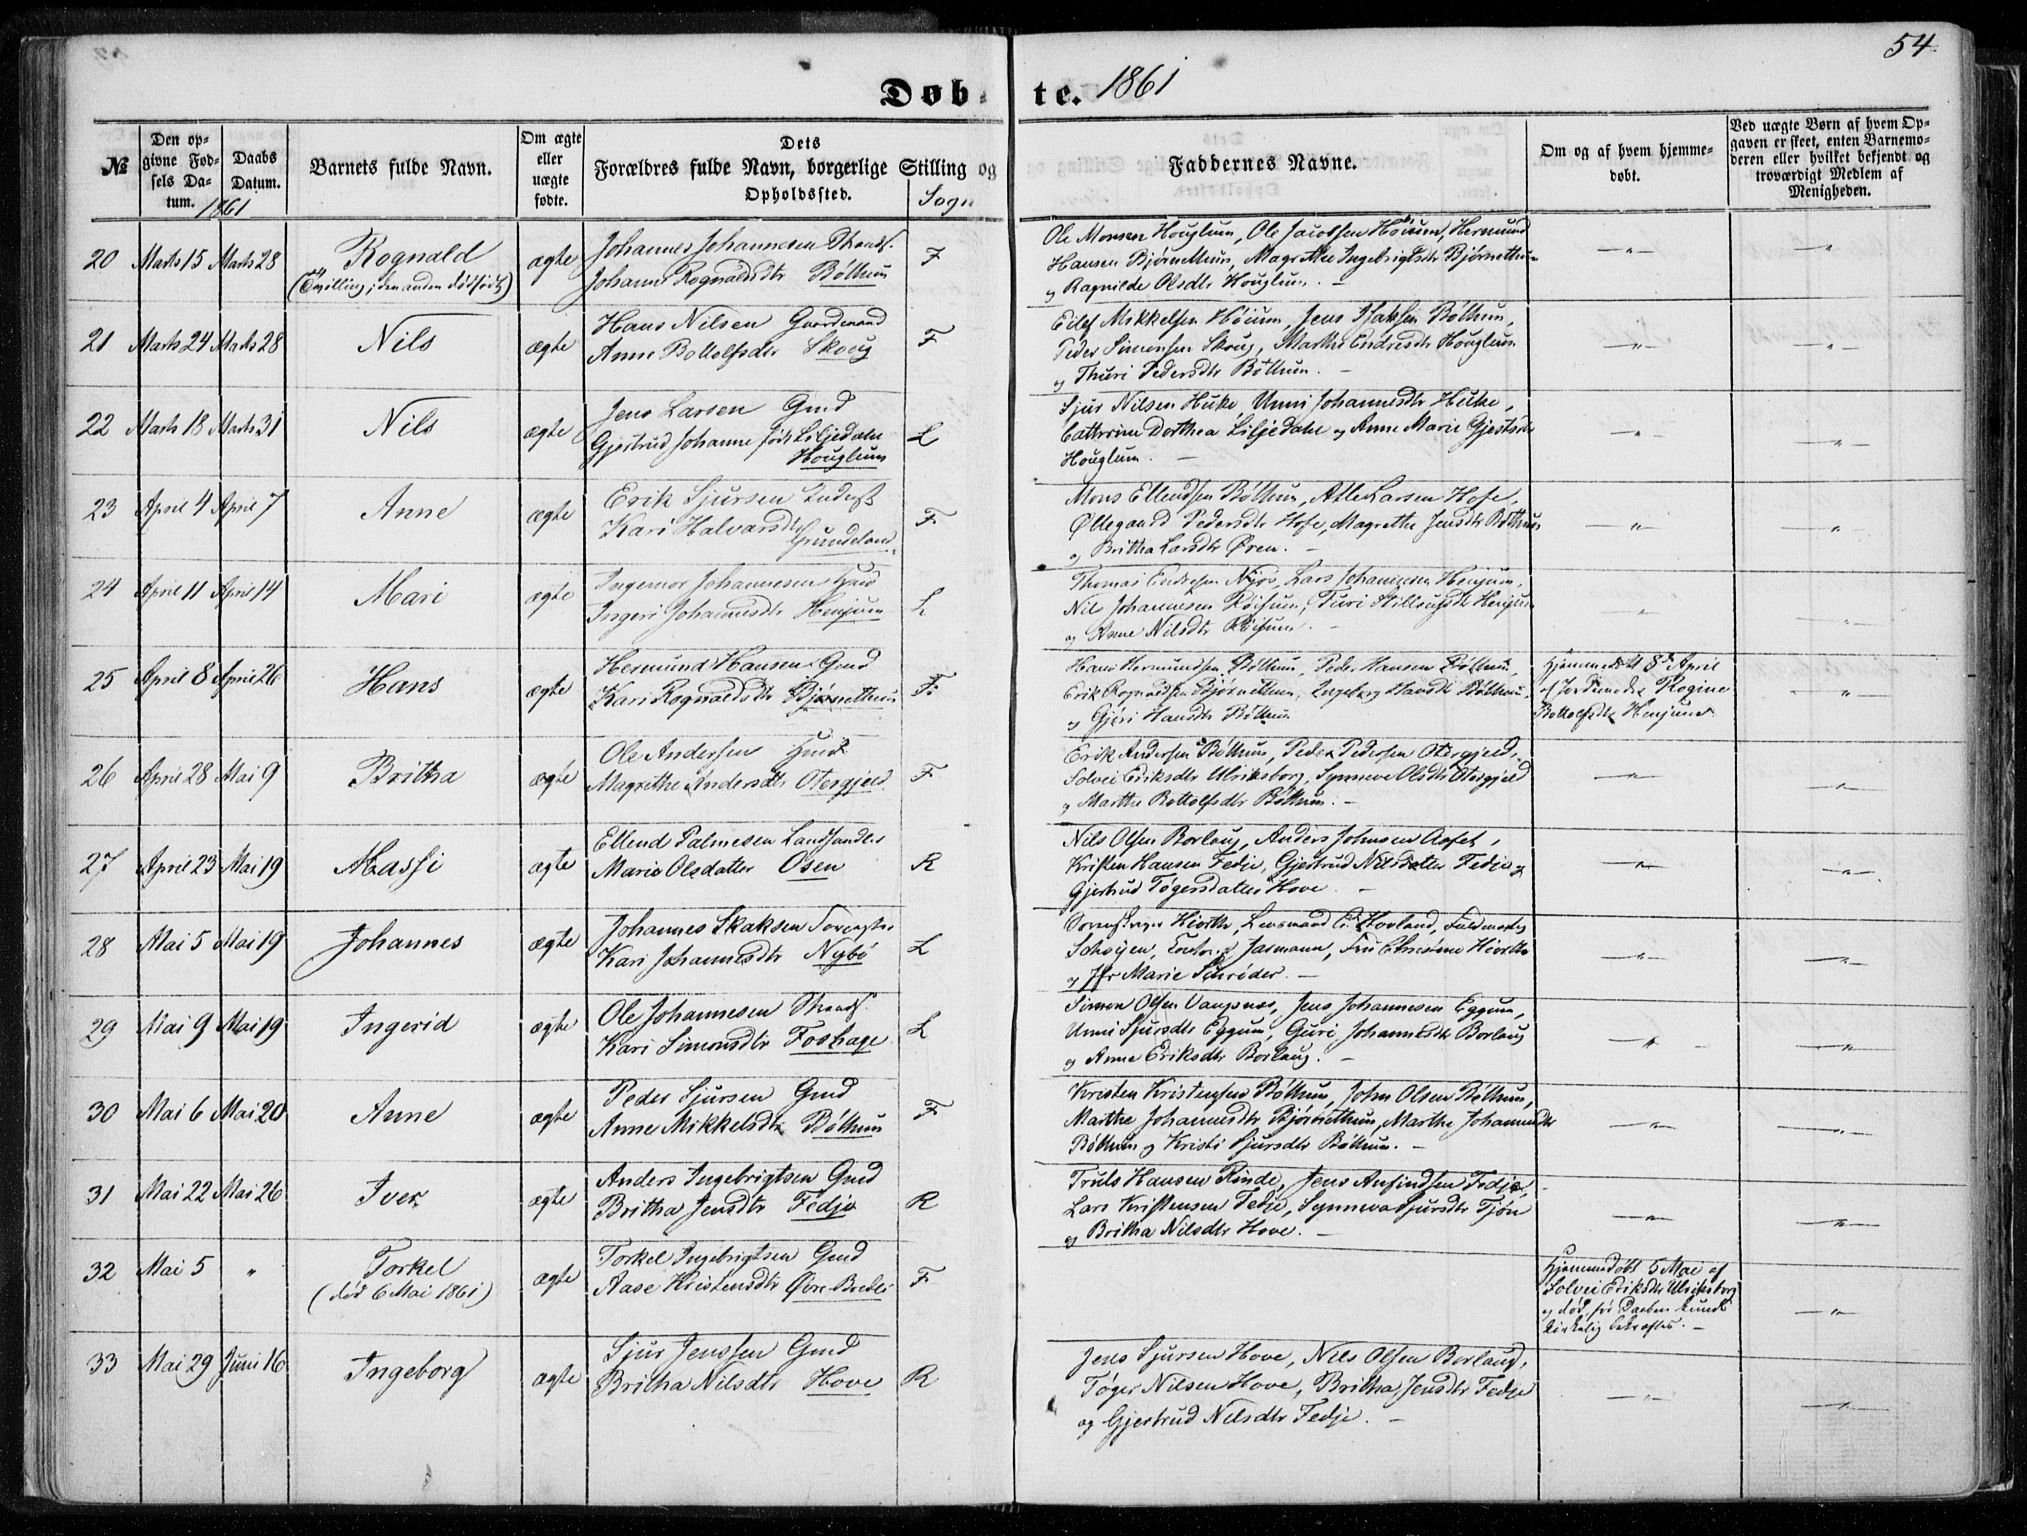 54
Døbte. 1861
№
Den opgivne Fødsels Datum.
Daabs Datum.
1861
Barnets fulde Navn.
Om ægte eller uægte fødte.
Dets Forældres fulde Navn, borgerlige Stilling og Opholdssted.
Sogn
Faddernes Navne.
Om og af hvem hjemmedøbt.
Ved uægte Børn af hvem Opgaven er skeet, enten Barnemoderen eller hvilket bekjendt og troværdigt Medlem af Menigheden.
20 Marts 15 Marts 28 Rognald ægte Johannes Johannesen Strands. F
(Tvilling; den anden dødfødt) Johanne Rognaldsdtr Bøthun
Ole Monsen Houglum, Ole Jacobsen Høium, Hermund
Hansen Bjørnethun, Magrethe Ingebrigtsdtr Bjørnethun
og Ragnilde Olsdtr Houglum. —
21 Marts 24 Marts 28 Nils ægte Hans Nilsen Gaardmand F
Anne Bottolfsdtr Skoug
Eilef Mikkelsen Høium, Jens Isaksen Bøthun,
Peder Simonsen Skoug, Marthe Endresdtr Houglum
og Thuri Pedersdtr Bøthun. —
22 Marts 18 Marts 31 Nils ægte Jens Larsen Gmd L
Gjertrud Johanne født Liljedahl
Houglum
Sjur Nilsen Huke, Unni Johannesdtr Huke,
Cathrine Dorthea Liljedahl og Anne Marie Gjestsdtr
Houglum. —
23 April 4 April 7 Anne ægte Erik Sjursen Inderst F
Kari Halvarsdtr
Grundeland
Mons Ellendsen Bøthun, Atle Larsen Hofe,
Øllegaard Pedersdtr Hofe, Magrethe Jensdtr Bøthun
og Britha Larsdtr Øren. —
24 April 11 April 14 Mari ægte Ingemor Johannesen Hmd L
Ingeri Johannesdtr Henjum
Thomas Endresen Njøs, Lars Johannesen Henjum,
Nils Johannesen Røisum, Turi Stillaugsdtr Henjum
og Anne Nilsdtr Røisum. —
25 April 8 April 26 Hans ægte Hermund Hansen Gmd F
Kari Rognaldsdtr Bjørnethun
Hans Hermundsen Bøthun, Peder Hansen Bøthun,
Erik Rognaldsen Bjørnethun, Ingeborg Hansdtr Bøthun
og Gjøri Hansdtr Bøthun
Hjemmedøbt 8d April
af Jordmoder Rogine
Bottolfsdtr Henjum
26 April 28 Mai 9 Britha ægte Ole Andersen Hmd F
Magrethe Andersdtr Otergjeld
Erik Andersen Bøthun, Peder Pedersen Otergjeld,
Solvei Eriksdtr Ulriksborg, Synneve Olsdtr Otergjeld
og Marthe Bottolfsdtr Bøthun. —
27 April 23 Mai 19 Massi ægte Ellend Palmesen Landhandler R
Marie Olsdatter Osen
Nils Olsen Borlaug, Anders Johnsen Aafet,
Kristen Hansen Fedje, Gjertrud Nilsdatter Fedje og
Gjertrud Tøgersdatter Hove. —
28 Mai 5 Mai 19 Johannes ægte Johannes Isaksen L
Kari Johannesdtr Nybø
Sorenskriver Hiorthe, Lensmand Hovland, Fuldmægtig
Schøyen, Jasmann, Fru Hiorthe
og Jfr Marie Schrøder. —
29 Mai 9 Mai 19 Ingerid ægte Ole Johannesen Strands. L
Kari Simonsdtr Foshage
Simon Olsen Vangsnæs, Jens Johannesen Eggum,
Unni Sjursdtr Eggum, Guri Johannesdtr Borlaug
og Anne Eriksdtr Borlaug. —
30 Mai 6 Mai 20 Anne ægte Peder Sjursen Gmd F
Anne Mikkelsdtr Bøthun
Kristen Kristensen Bøthun, John Olsen Bøthun,
Marthe Johannesdtr Bjørnethun, Marthe Johannesdtr
Bøthun og Kristi Sjursdtr Bøthun. —
31 Mai 22 Mai 26 Iver ægte Anders Ingebrigtsen Gmd R
Britha Jensdtr Fedje
Truls Hansen Rinde, Jens Anfindsen Fedje,
Lars Kristensen Fedje, Synneva Sjursdtr Tjøn
og Britha Nilsdtr Hove. —
32 Mai 5 " Torkel ægte Torkel Ingebrigtsen Gmd F
(død 6 Mai 1861) Aase Kristensdtr Øvre-Bredei
Hjemmedøbt 5 Mai af
Solvei Eriksdtr Ulriksborg
og død, før Daaben kunde
kirkelig bekræftes. —
33 Mai 29 Juni 16 Ingeborg ægte Sjur Jenssen Gmd R
Britha Nilsdtr Hove
Jens Sjursen Hove, Nils Olsen Borlaug,
Tøger Nilsen Hove, Britha Jensdtr Fedje
og Gjertrud Nilsdtr Fedje. —